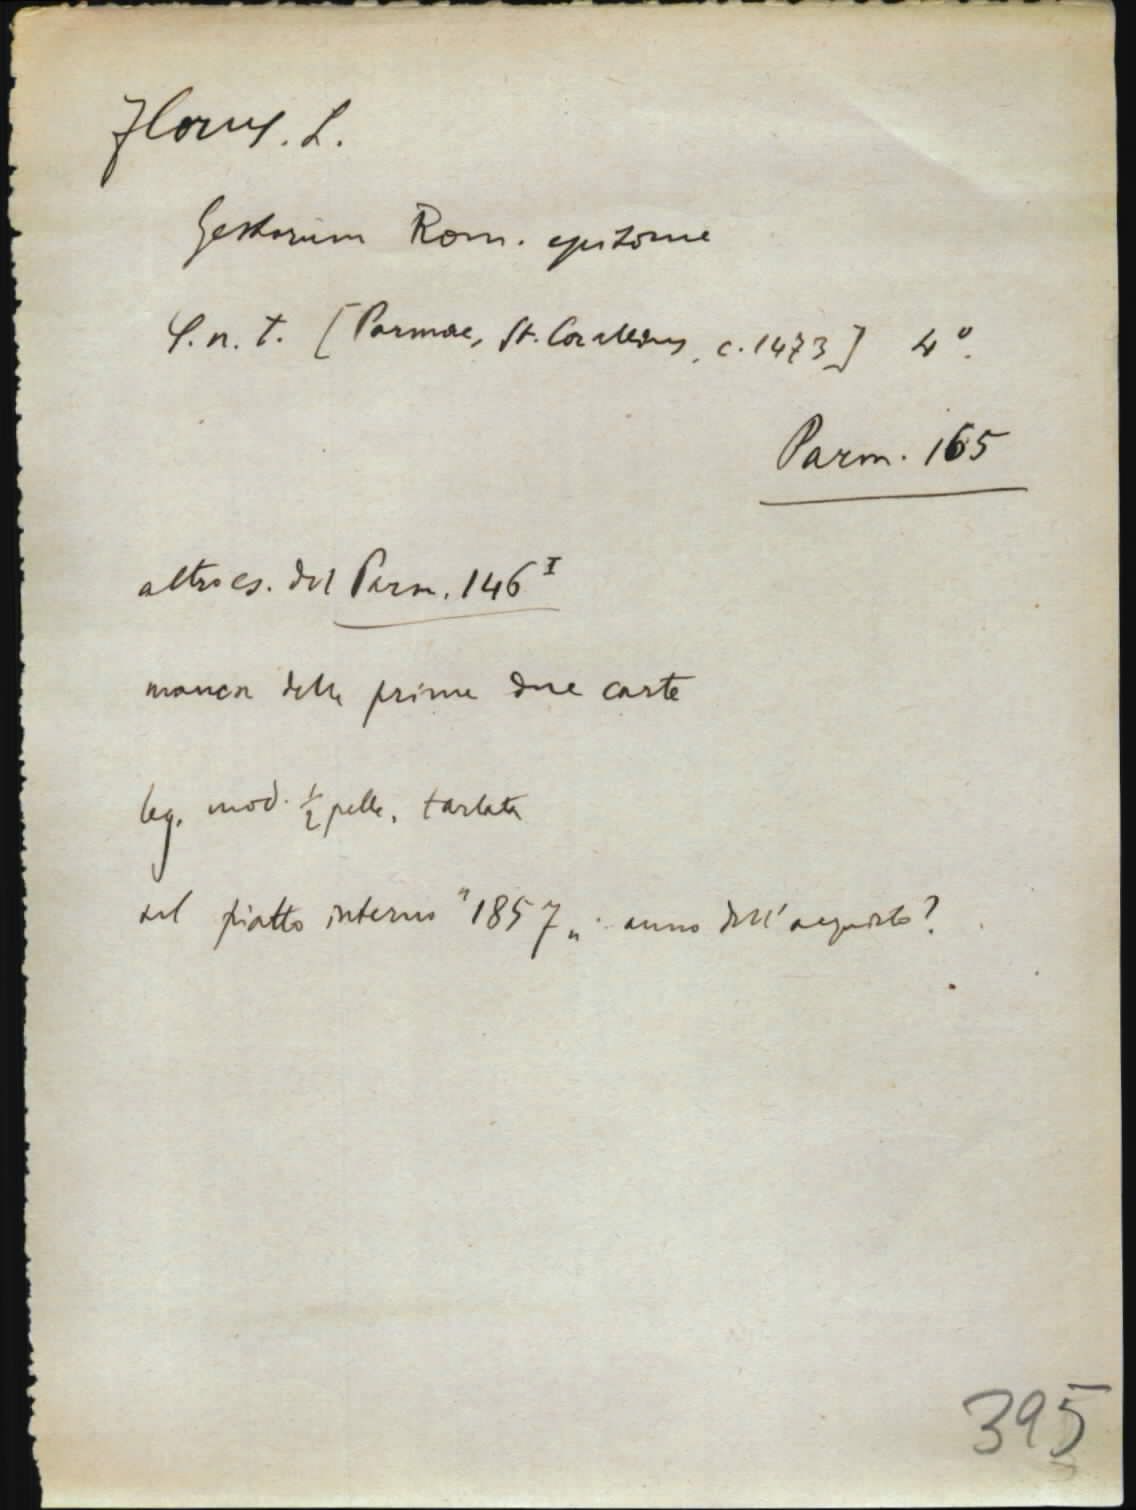 Florus. L.
Gestorum Rom. epitome
S. n. t. [Parmae, St. Corallus, c. 1473] 4°.
Parm. 165
altro es. del Parm. 146 I
manca delle prime due carte
leg. mod. ½ pelle, tarlata
sul piatto interno "1857„ anno dell'acquisto?
395